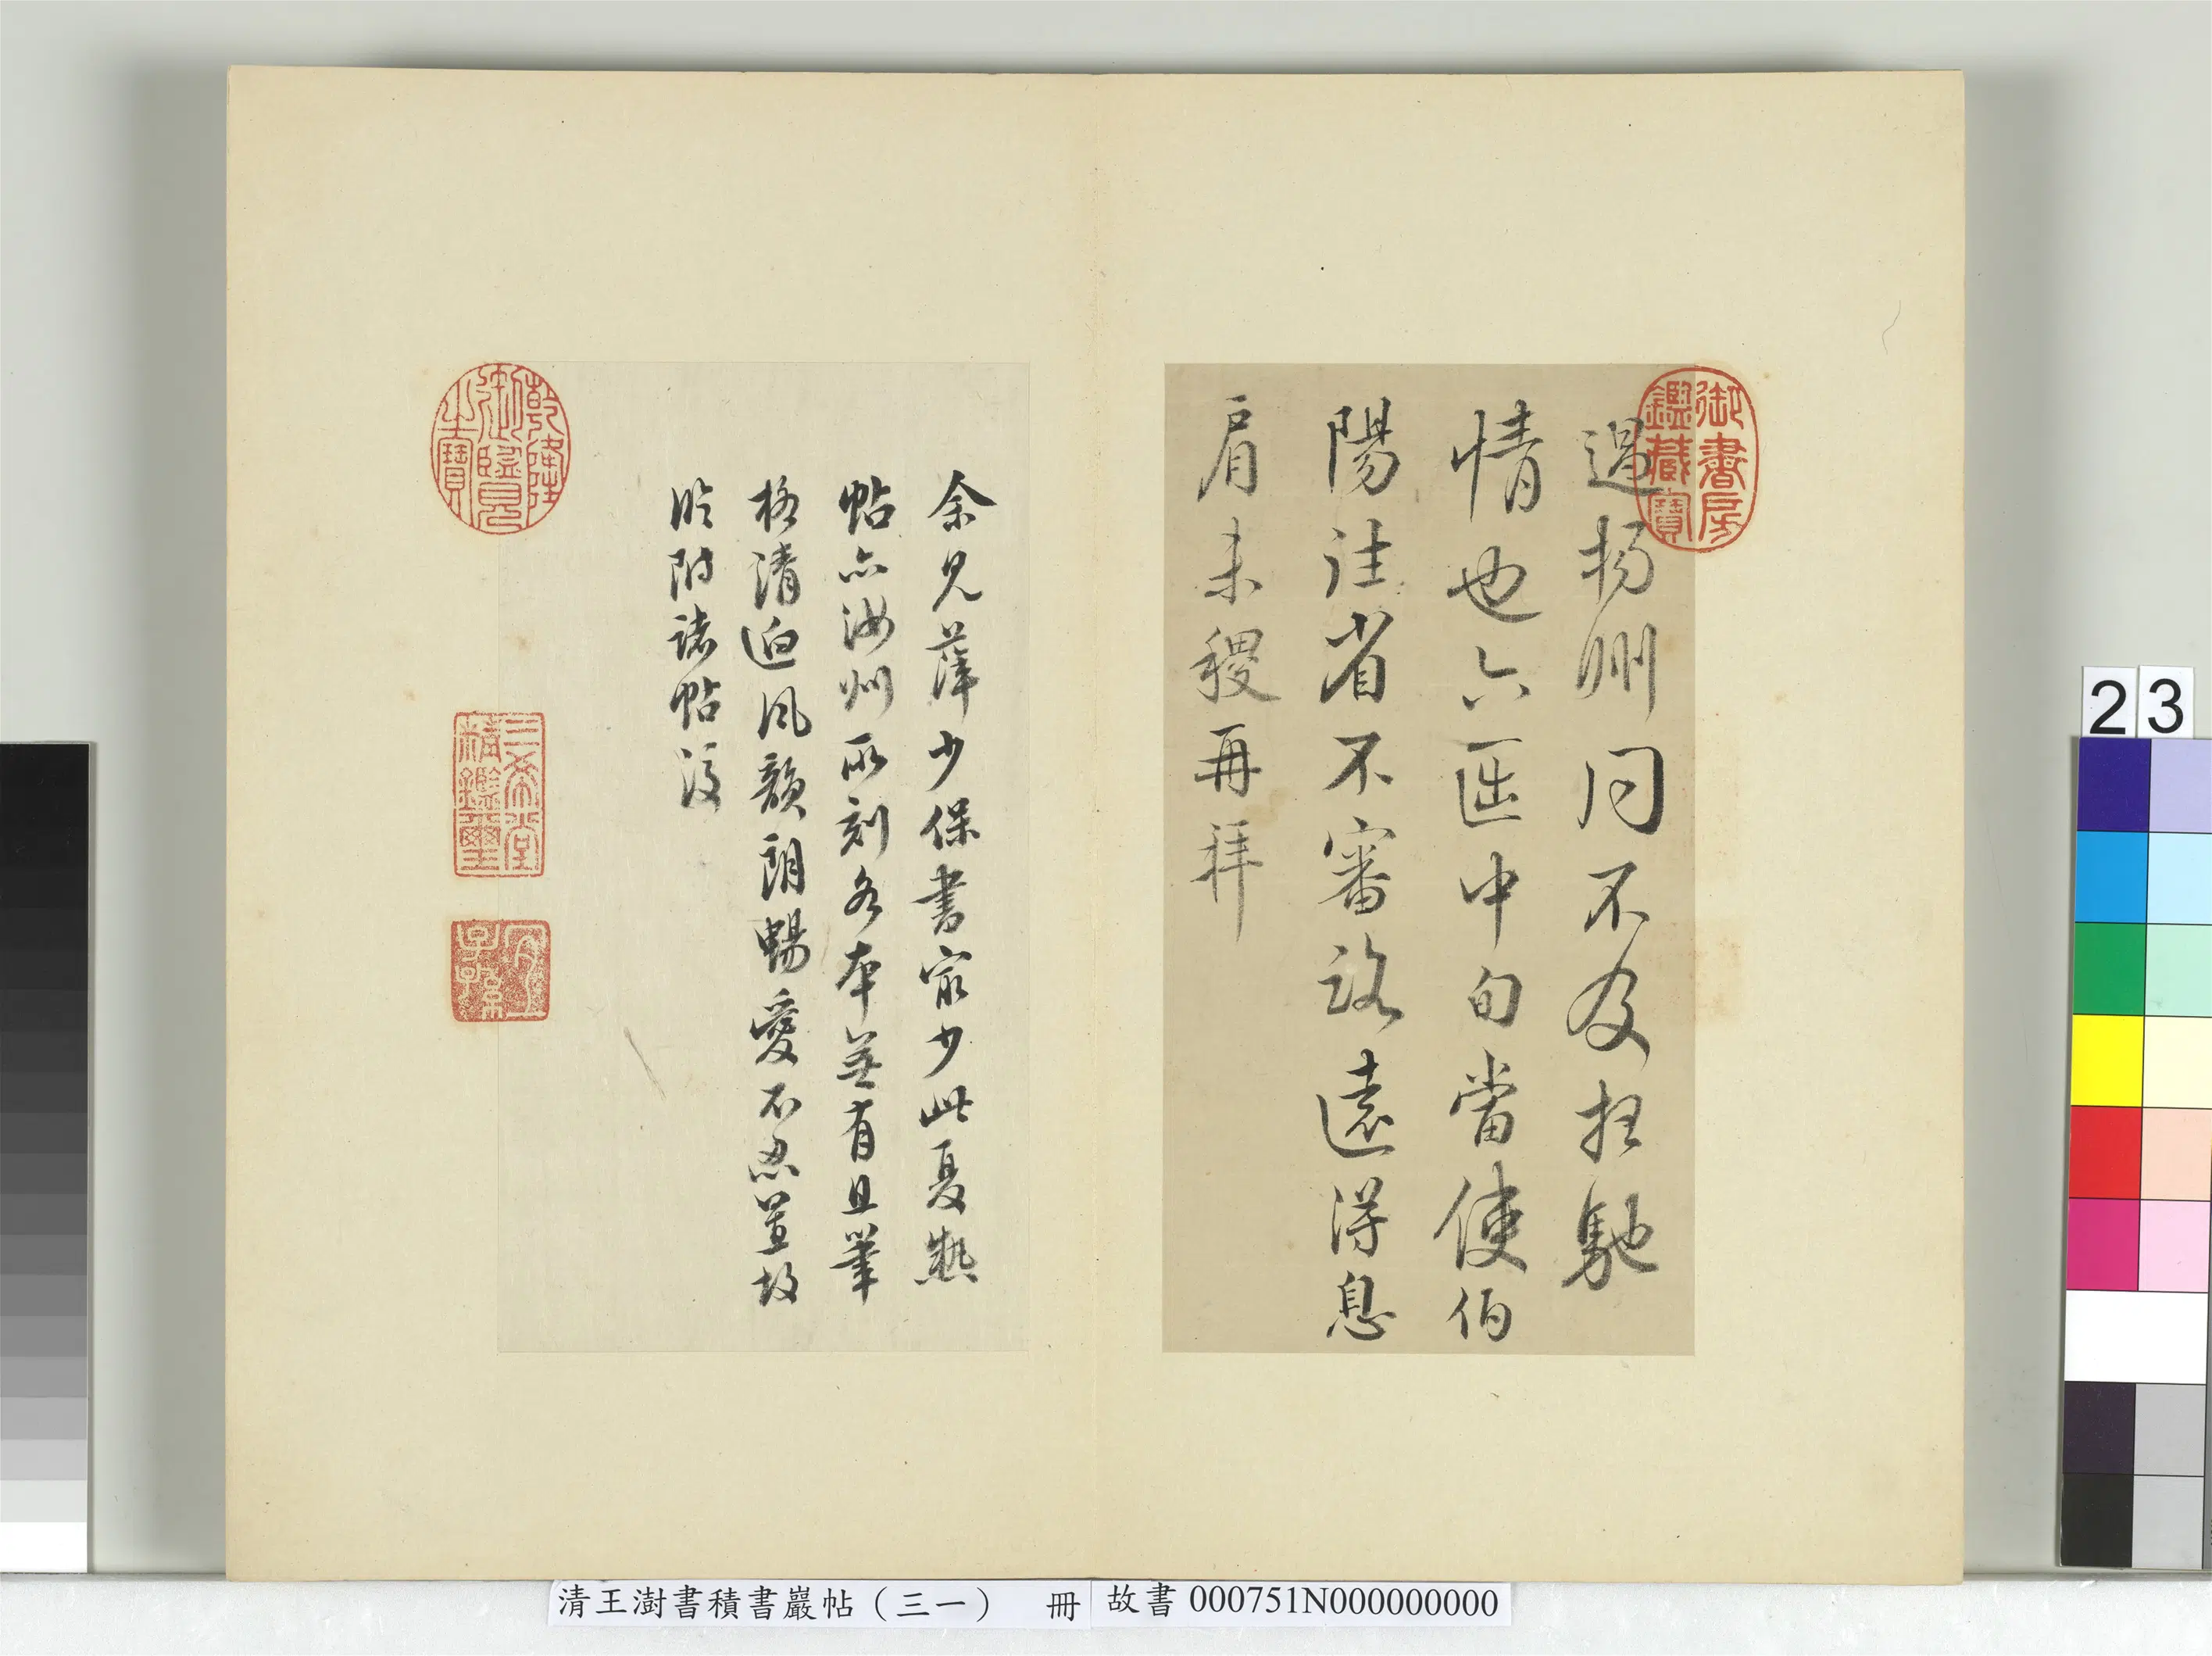 御書房
鑑藏寶
過揚州同不及拄馳
情也六匹中旬當使伯
陽往省不審路遠得息
肩未稷再拜
余見薛少保書最少此夏熱
帖亦汝州所刻各本並有且筆
格清迥風韻朗暢愛不忍置故
臨附諸帖後
乾隆
御覽
之寶
三希堂
精鑑璽
宜
子孫
23
清王澍書積書巖帖（三一） 冊
故書 000751N000000000